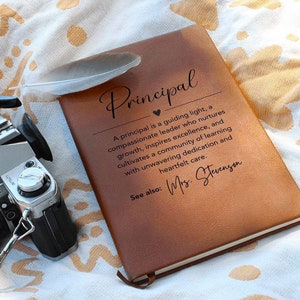 Principal
A principal is a guiding light, a
compassionate leader who nurtures
growth, inspires excellence, and
cultivates a community of learning
with unwavering dedication and
heartfelt care.
See also: Mrs. Stevenson